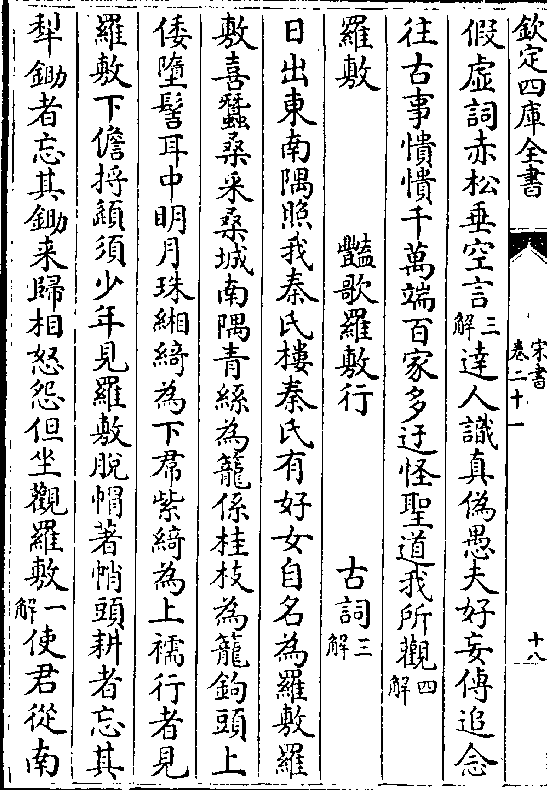 欽定四庫全書
宋書
卷二十一
十八
假虛詞赤松垂空言三解達人識真偽愚夫好妄傅追念
往古事憒憒千萬端百家多迂怪聖道我所觀四解
羅敷 豔歌羅敷行 古詞三解
日出東南隅照我秦氏樓秦氏有好女自名為羅敷羅
敷喜蠶桑采桑城南隅青絲為籠係桂枝為籠鉤頭上
倭墮髻耳中明月珠緗綺為下帬紫綺為上襦行者見
羅敷下儋捋頾須少年見羅敷脫帽著帩頭耕者忘其
犁鋤者忘其鋤来歸相怒怨但坐觀羅敷一解使君從南